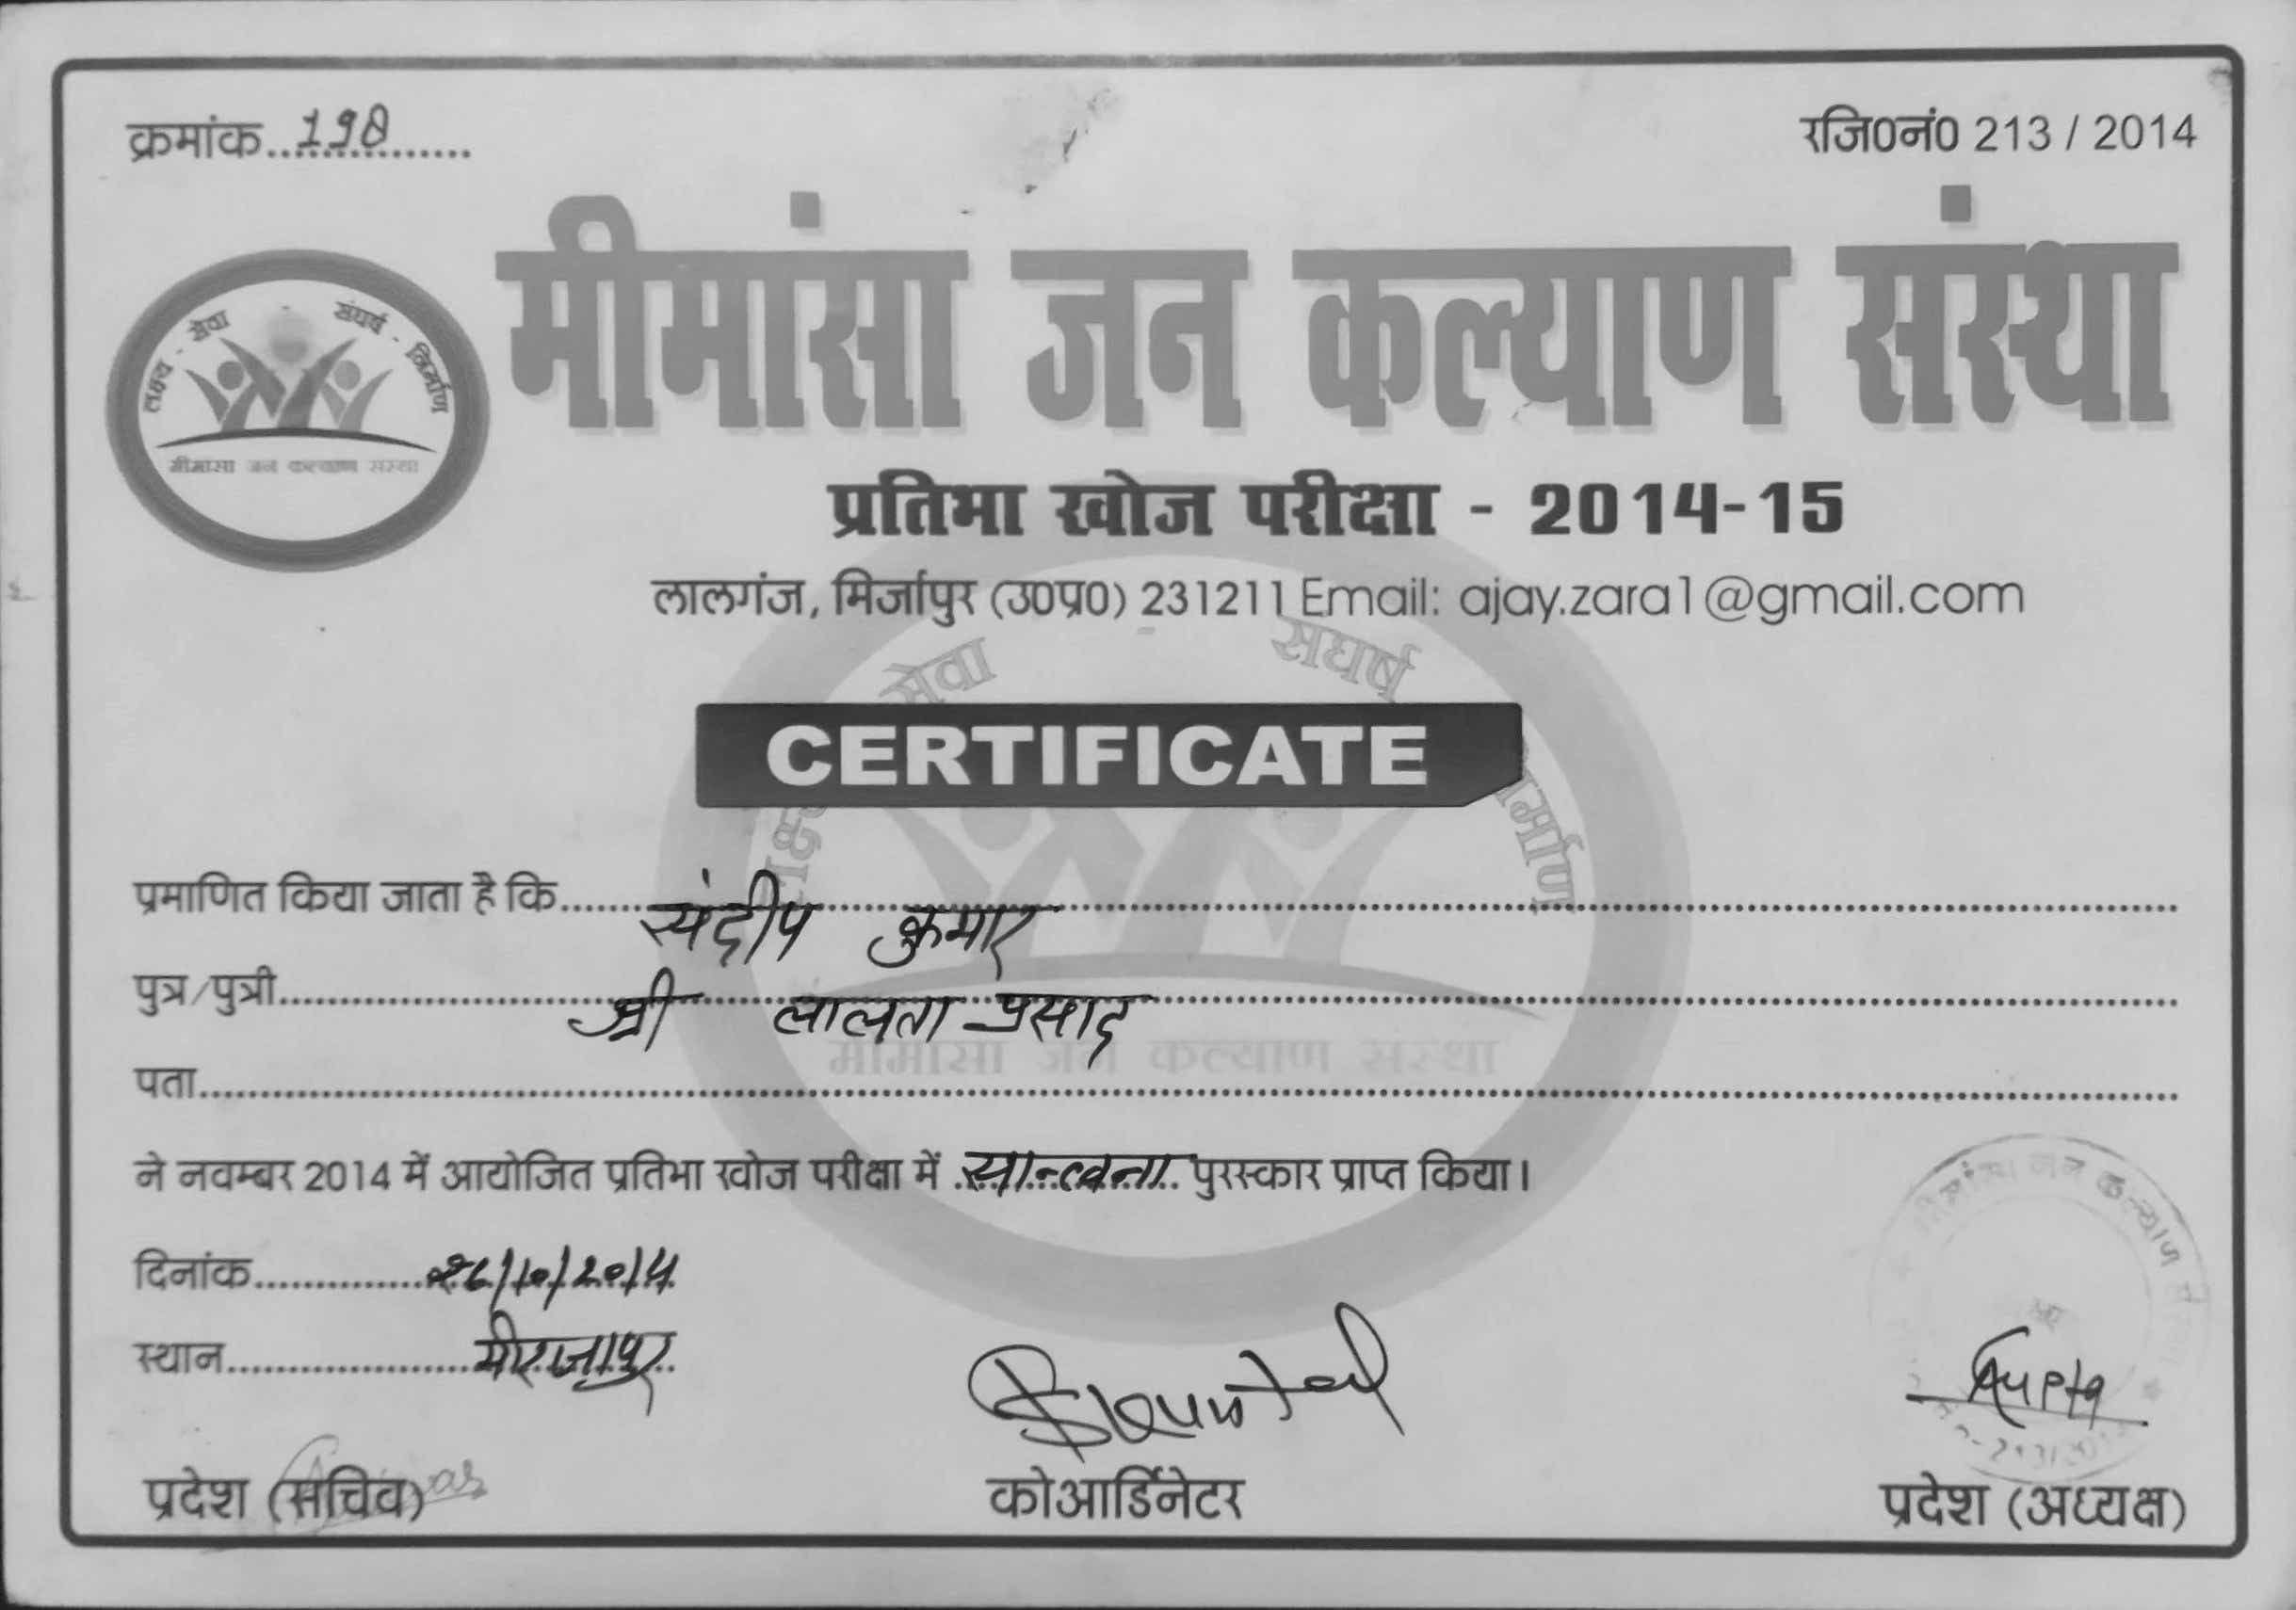 क्रमांक..198.......
रजि0नं0 213 / 2014
लक्ष्य - सेवा संघर्ष - निर्माण
मीमांसा जन कल्याण संस्था
मीमांसा जन कल्याण संस्था
प्रतिभा खोज परीक्षा - 2014-15
लालगंज, मिर्जापुर (उ0प्र0) 231211 Email: ajay.zara1@gmail.com
सेवा संघर्ष
CERTIFICATE
प्रमाणित किया जाता है कि......संदीप कुमार
पुत्र/पुत्री......श्री लालता प्रसाद
मीमांसा जन कल्याण संस्था
पता......
ने नवम्बर 2014 में आयोजित प्रतिभा खोज परीक्षा में सान्त्वना पुरस्कार प्राप्त किया।
मीमांसा जन कल्याण
दिनांक......26/10/2014
स्थान......मीरजापुर
Gupta
प्रदेश (सचिव)
कोआर्डिनेटर
प्रदेश (अध्यक्ष)